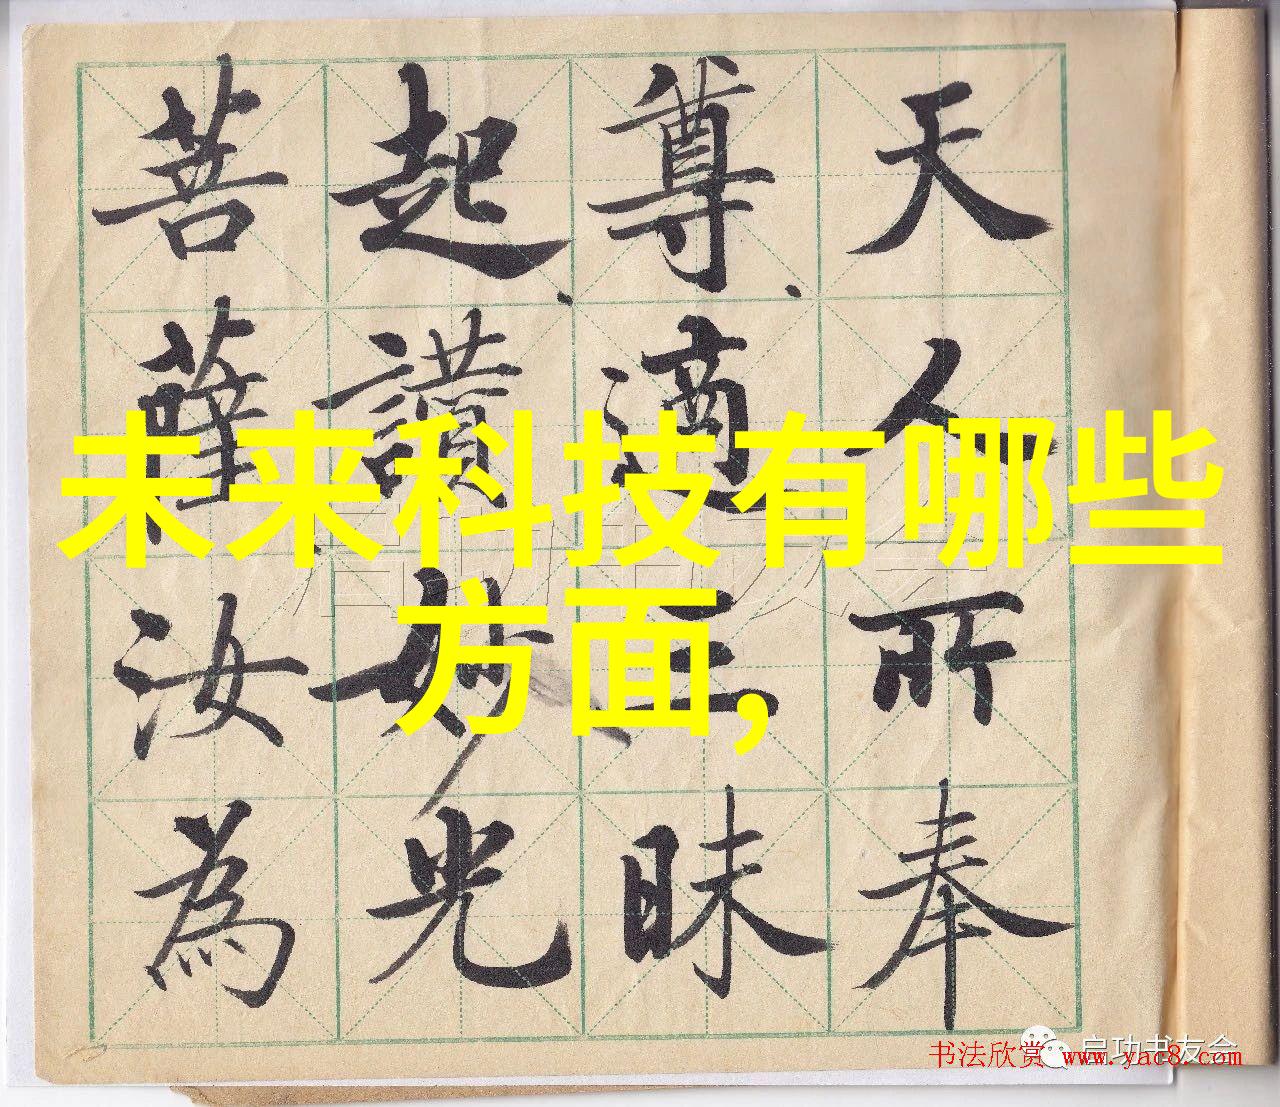 天人所奉
尊適三昧
起讚妙光
菩薩汝為
未来科技有哪些
方面,
启功书友会
书法欣赏 www.yac8.com
启功书友会